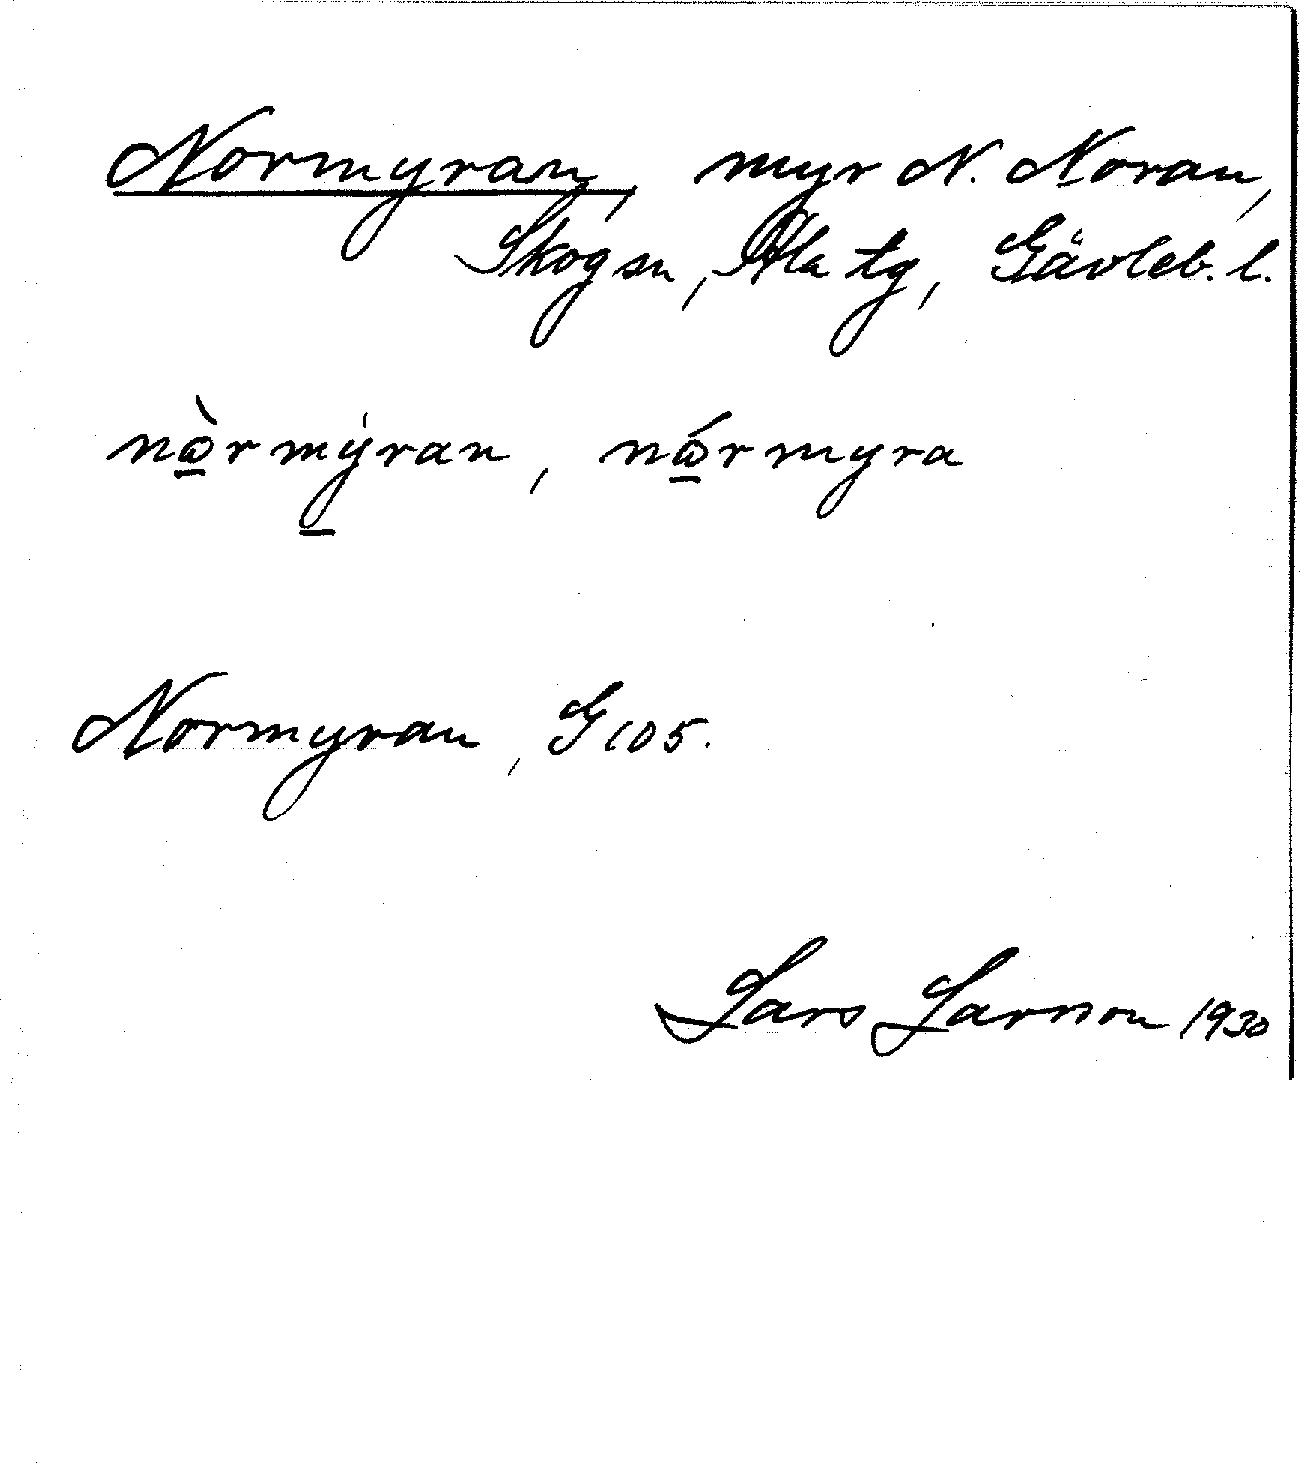 Normyran, myr N. Noran,
Skog sn, Ala tg, Gävleb. l.
nòrmýran, nórmyra
Normyran, G 105.
Lars Larsson 1930